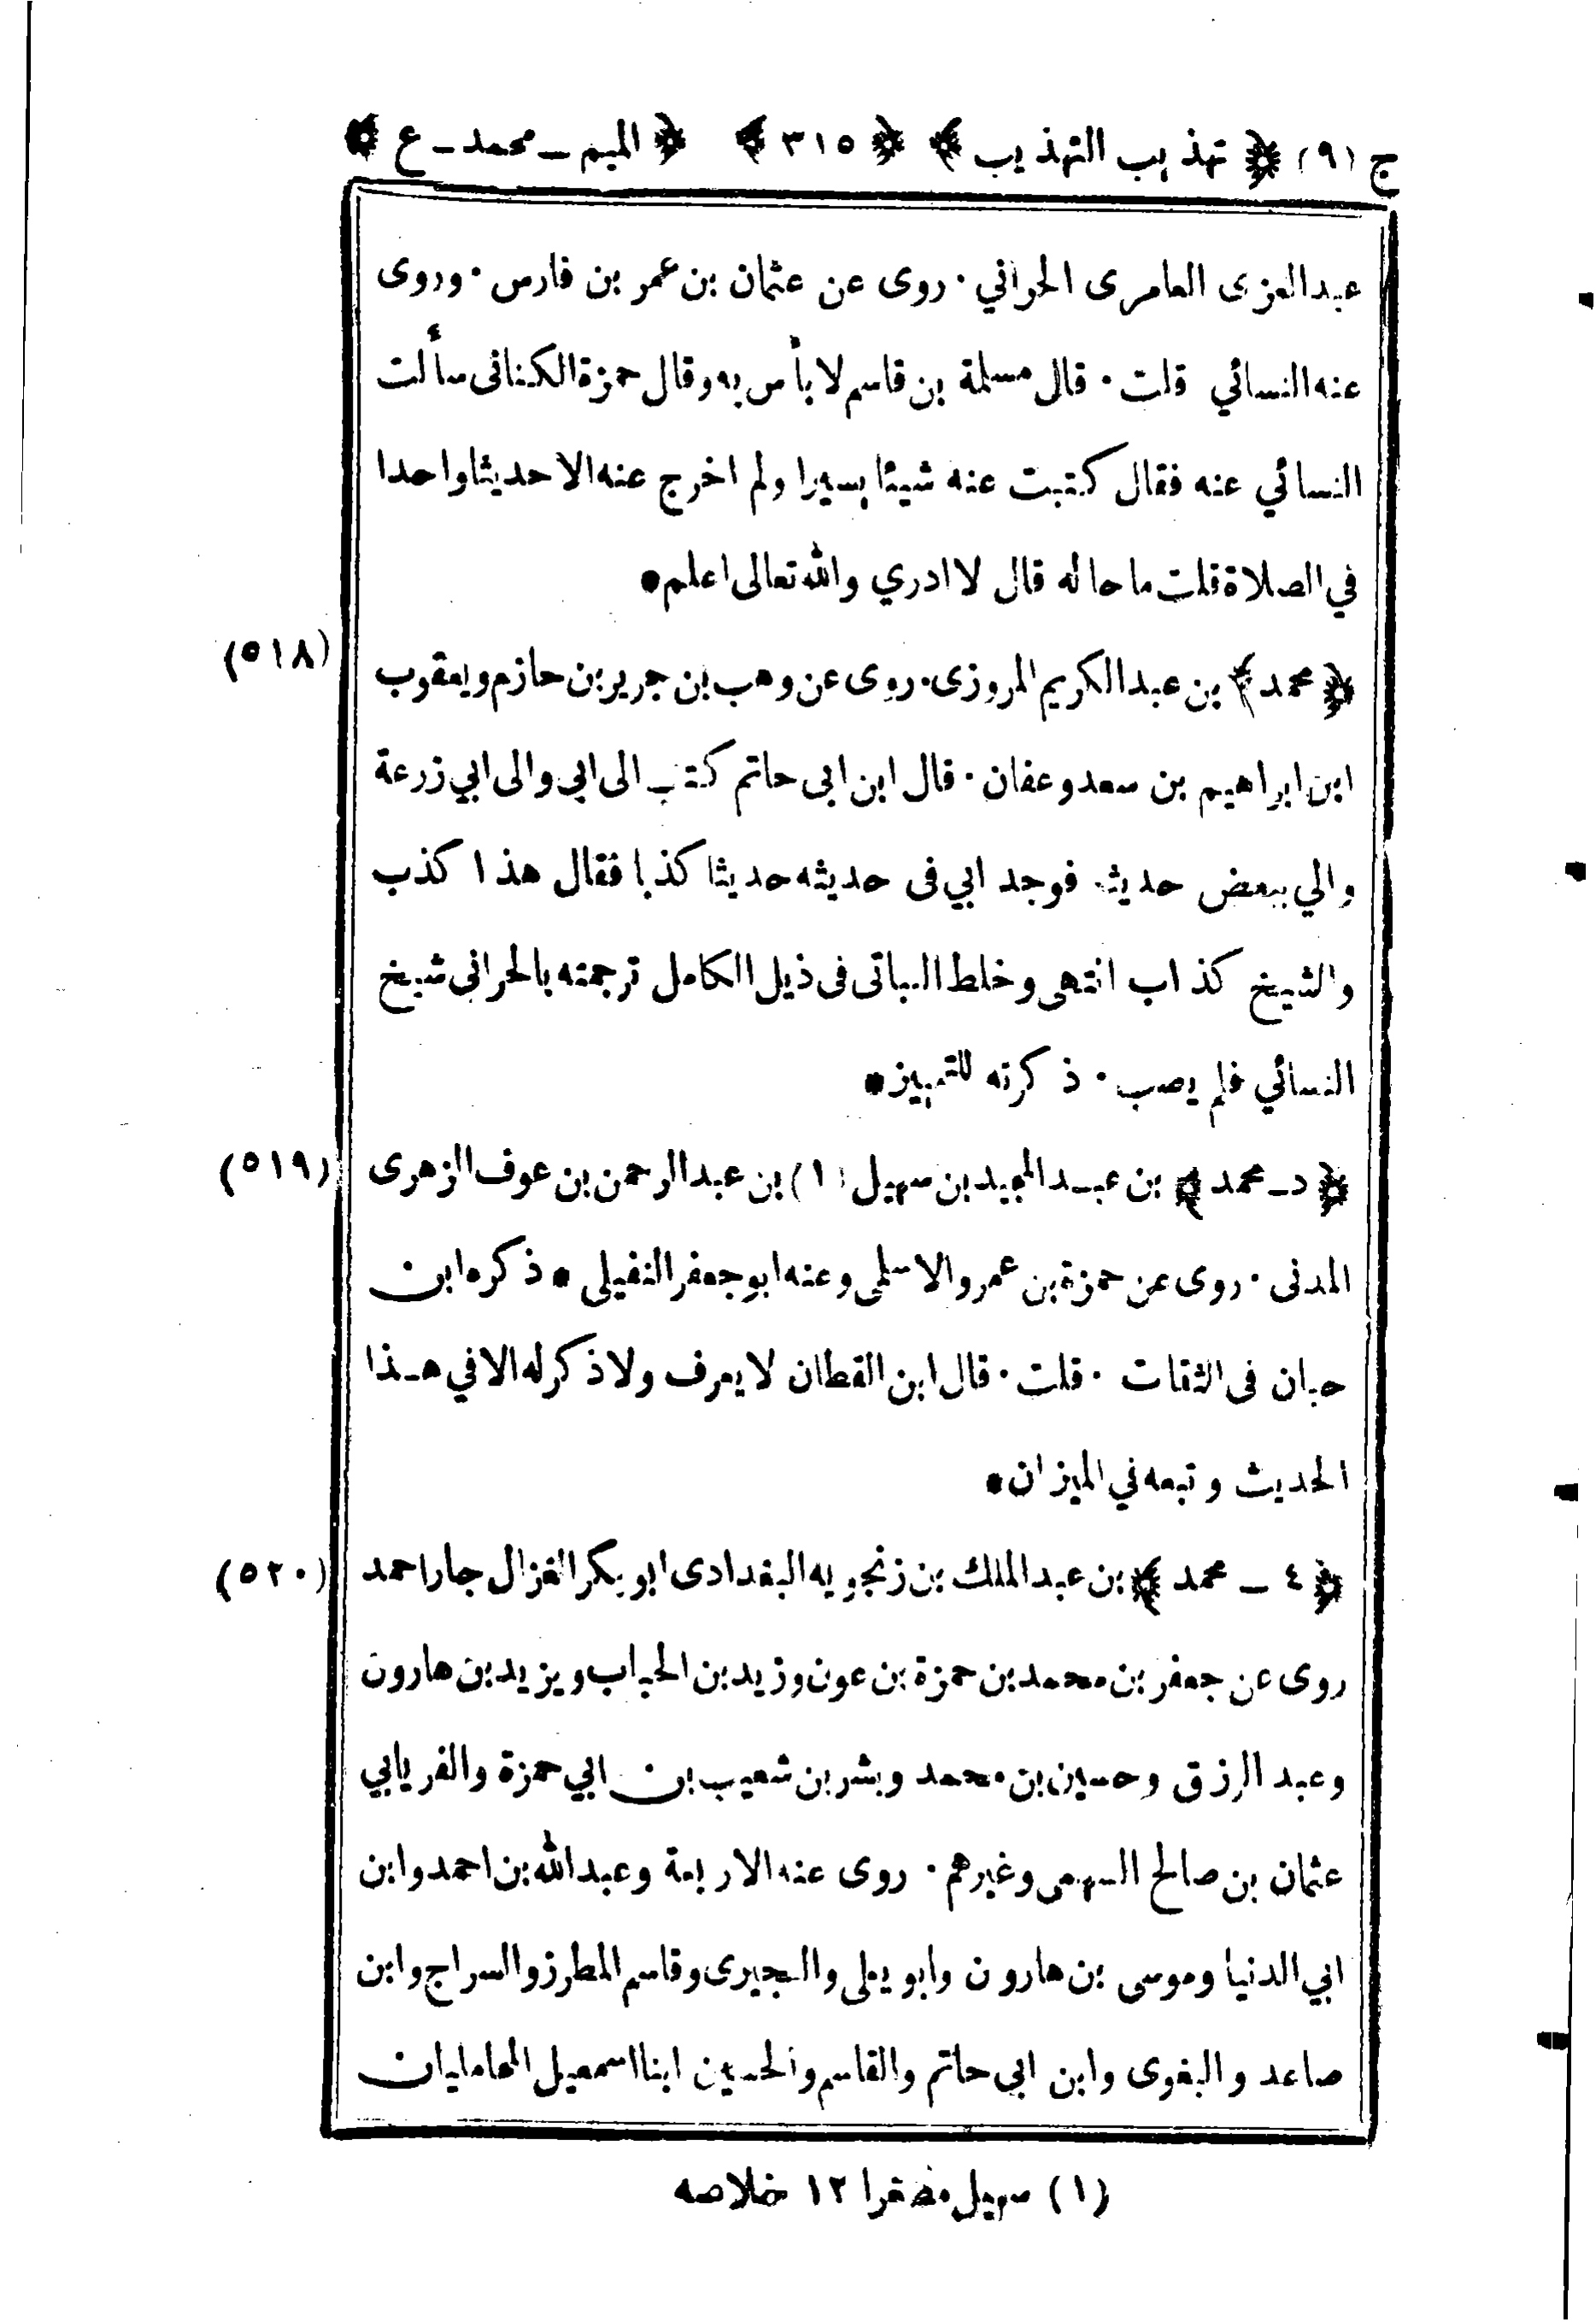 ج (٩) ﴿ تهذيب التهذيب ﴾ ﴿ ٣١٥ ﴾ ﴿ الميم ـ محمد ـ ع ﴾
عبدالعزى العامرى الحراني · روى عن عثمان بن عمر بن فارس · وروى
عنه النسائي قلت · قال مسلمة بن قاسم لا بأس به وقال حمزة الكنانى سألت
النسائي عنه فقال كتبت عنه شيئا يسيرا ولم اخرج عنه الا حديثا واحدا
في الصلاة قلت ما حاله قال لا ادري والله تعالى اعلم *
(٥١٨)
﴿ محمد ﴾ بن عبد الكريم المروزى · روى عن وهب بن جرير بن حازم ويعقوب
ابن ابراهيم بن سعد وعفان · قال ابن ابى حاتم كتب الى ابي والى ابي زرعة
والي ببعض حديثه فوجد ابي فى حديثه حديثا كذبا فقال هذا كذب
والشيخ كذاب انتهى وخلط النباتى فى ذيل الكامل ترجمته بالحرانى شيخ
النسائي فلم يصب · ذكرته للتمييز *
(٥١٩)
﴿ د ـ محمد ﴾ بن عبد المجيد بن سهيل (١) بن عبد الرحمن بن عوف الزهرى
المدنى · روى عن حمزة بن عمرو الاسلمى وعنه ابو جعفر النفيلى * ذكره ابن
حبان فى الثقات · قلت · قال ابن القطان لا يعرف ولا ذكر له الا في هـذا
الحديث وتبعه في الميزان *
(٥٢٠)
﴿ ٤ ـ محمد ﴾ بن عبد الملك بن زنجويه البغدادى ابو بكر الغزال جار احمد
روى عن جعفر بن محمد بن حمزة بن عون وزيد بن الحباب ويزيد بن هارون
وعبد الرزق وحسين بن محمد وبشر بن شعيب بن ابي حمزة والفريابي
عثمان بن صالح السهمى وغيرهم · روى عنه الاربعة وعبد الله بن احمد وابن
ابي الدنيا وموسى بن هارون وابو يعلى والبجيرى وقاسم المطرز والسراج وابن
صاعد والبغوى وابن ابي حاتم والقاسم والحسين ابنا اسمعيل المحامليان
(١) سهيل مصغرا ١٢ خلاصه